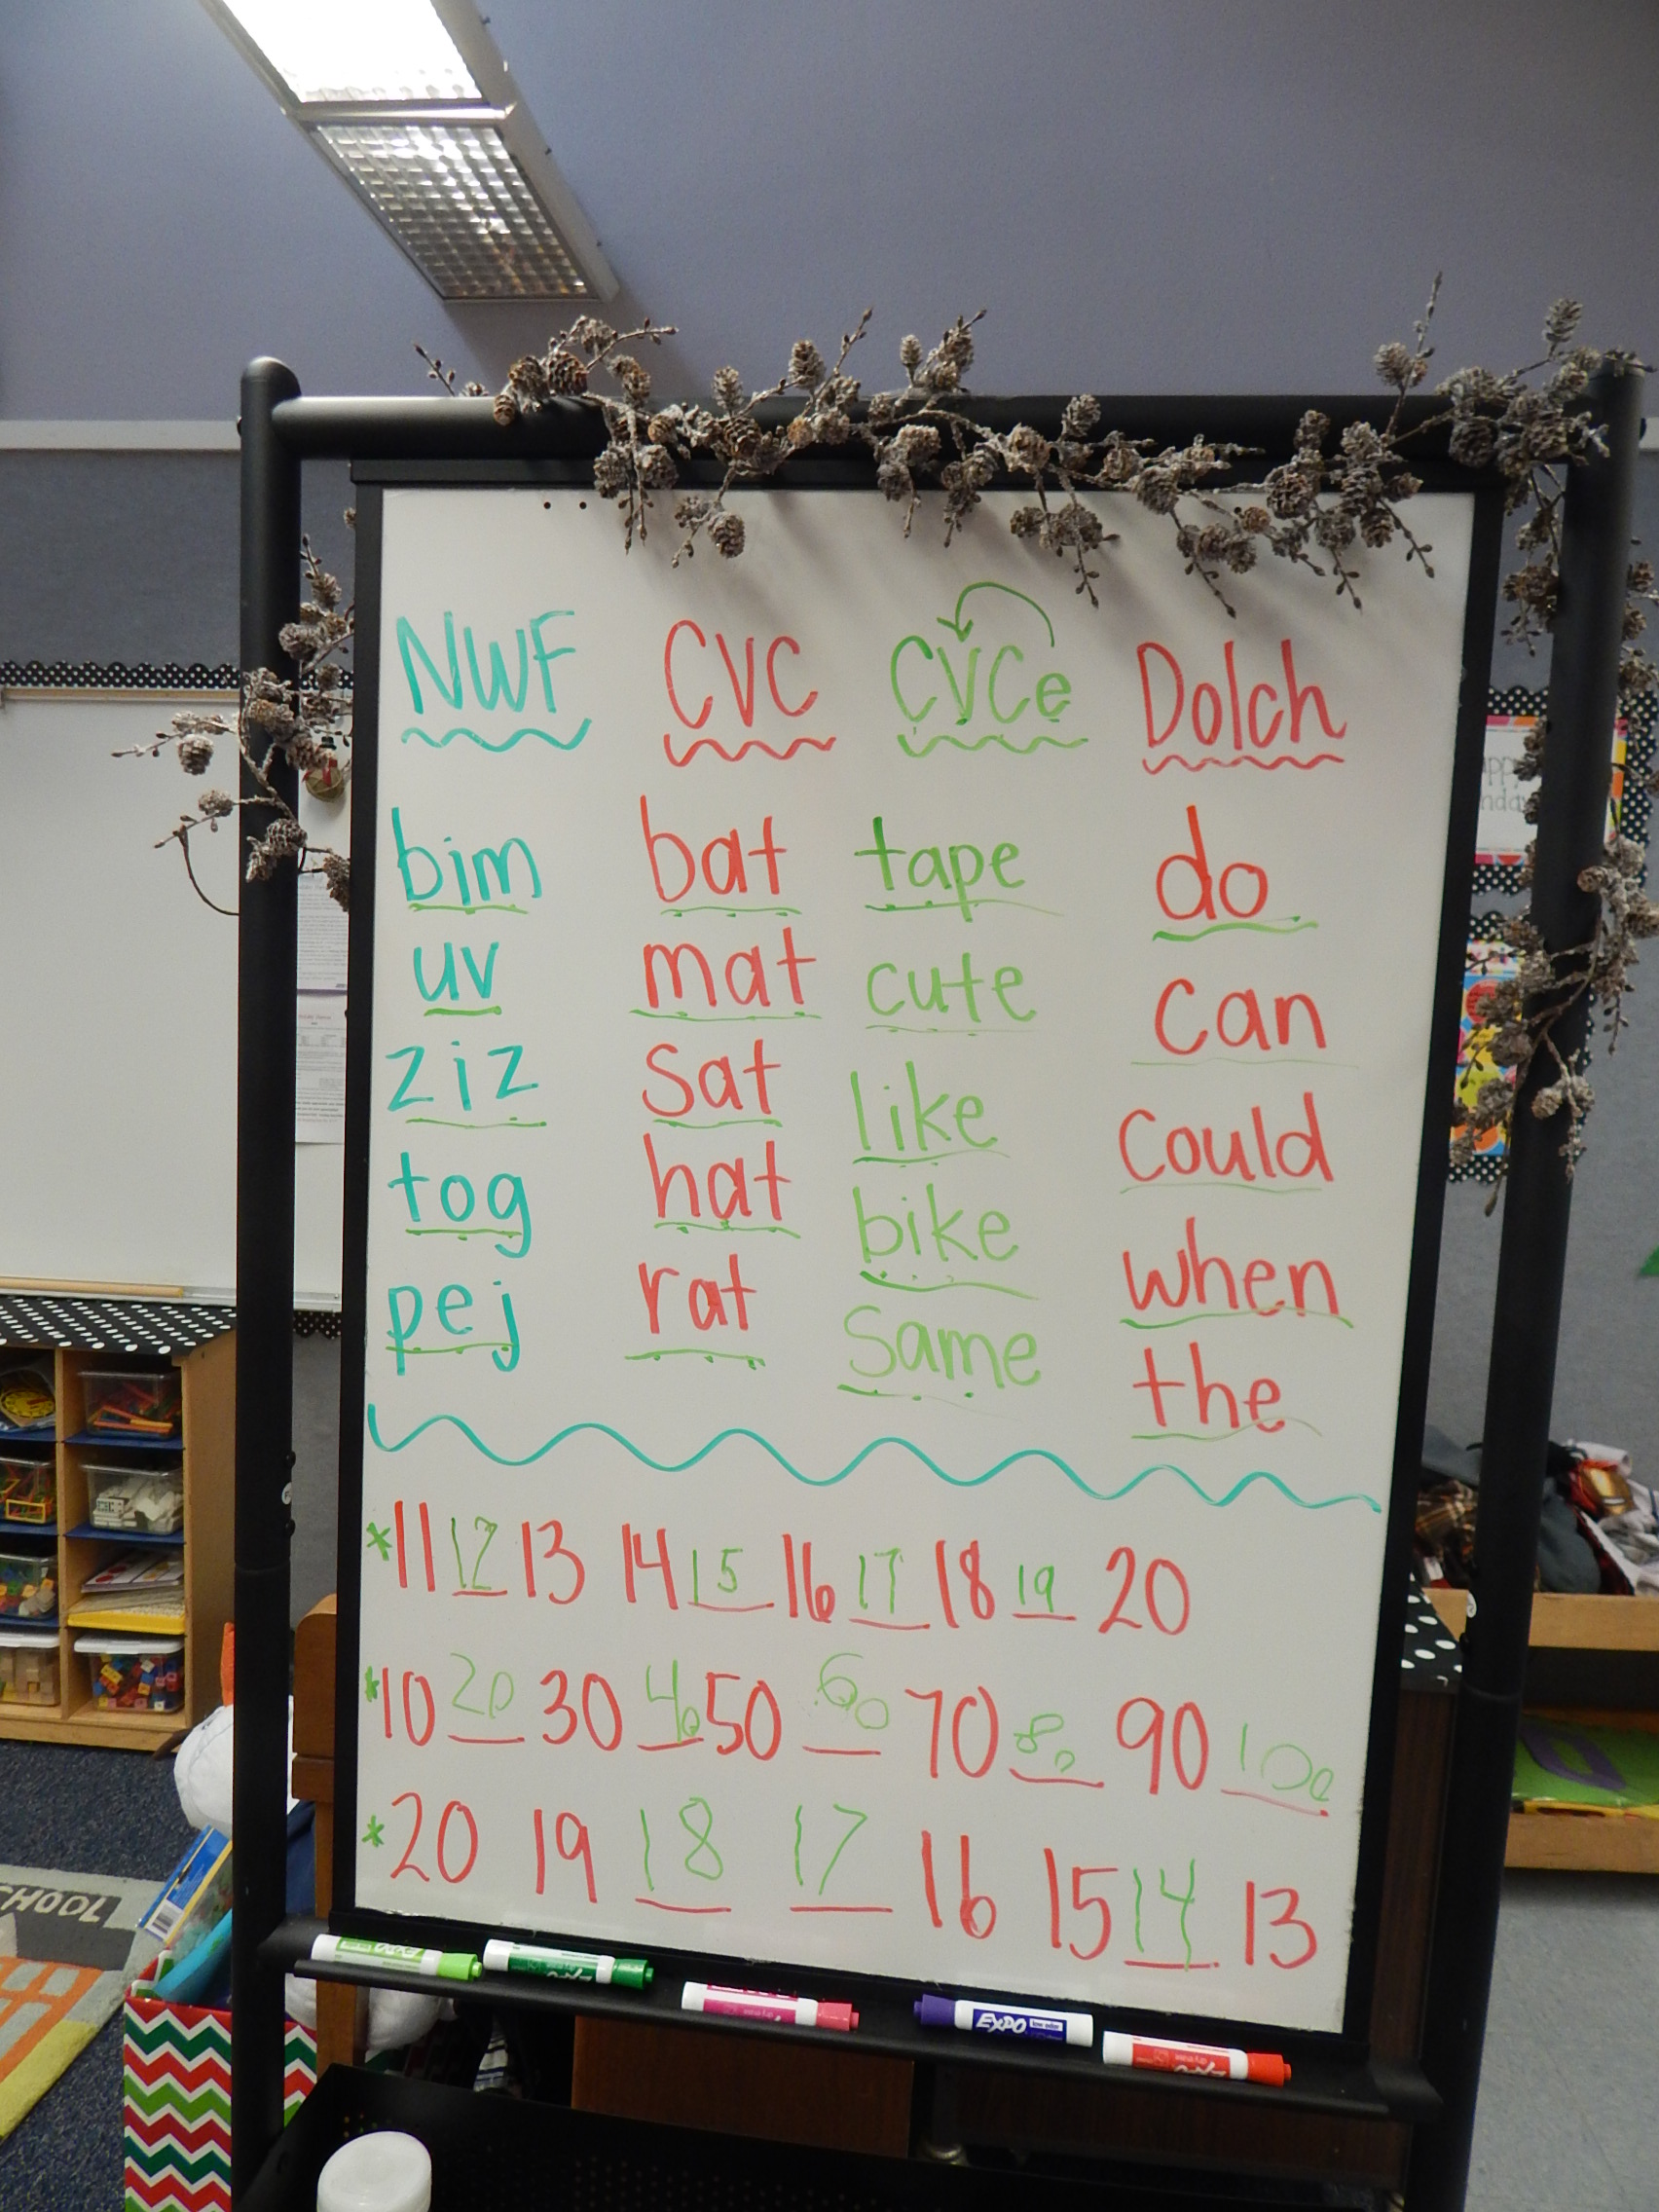 NWF CVC CVCe Dolch
bim bat tape do
uv mat cute can
ziz sat like could
tog hat bike when
pej rat same the
*11 12 13 14 15 16 17 18 19 20
*10 20 30 40 50 60 70 80 90 100
*20 19 18 17 16 15 14 13
EXPO
EXPO
EXPO
CHOOL